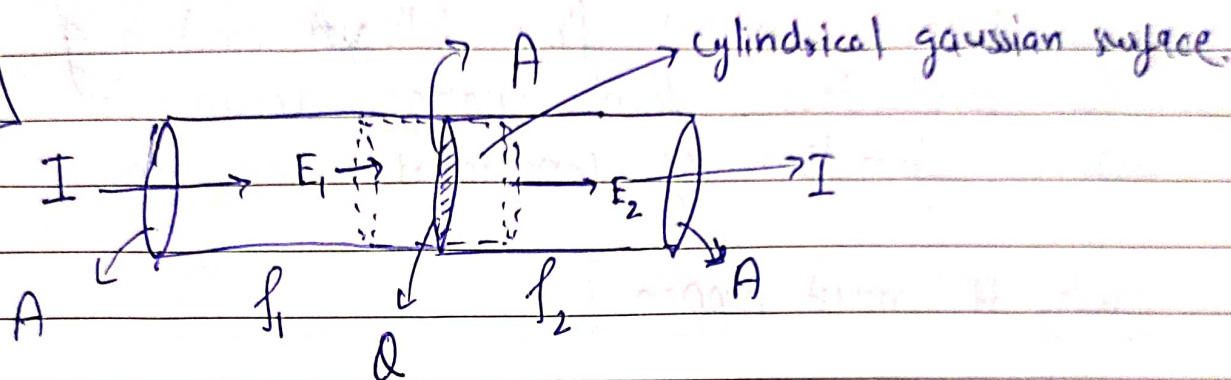 A
cylindrical gaussian surface.
I E₁ E₂ I
A ρ₁ ρ₂ A
Q